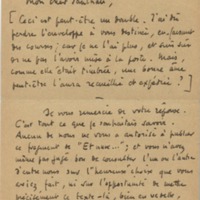 Mon cher
[Ceci est peut-être un double. J'ai dû
perdre l'enveloppe à vous destinée, en faisant
des courses, car je ne l'ai plus, et suis sûr
de ne pas l'avoir mise à la poste. Mais,
comme elle était timbrée, une bonne âme
peut-être l'aura recueillie et expédiée ?]
Je vous remercie de votre réponse.
C'est tout ce que je souhaitais savoir.
Aucun de nous ne vous a autorisé à publier
ce fragment de "Et aux...", et vous n'avez
même pas jugé bon de consulter l'un ou l'autre
d'entre nous sur l'heureuse chose que vous
aviez fait, ni sur l'opportunité de mettre
précisément ce texte-là, bien en vedette,